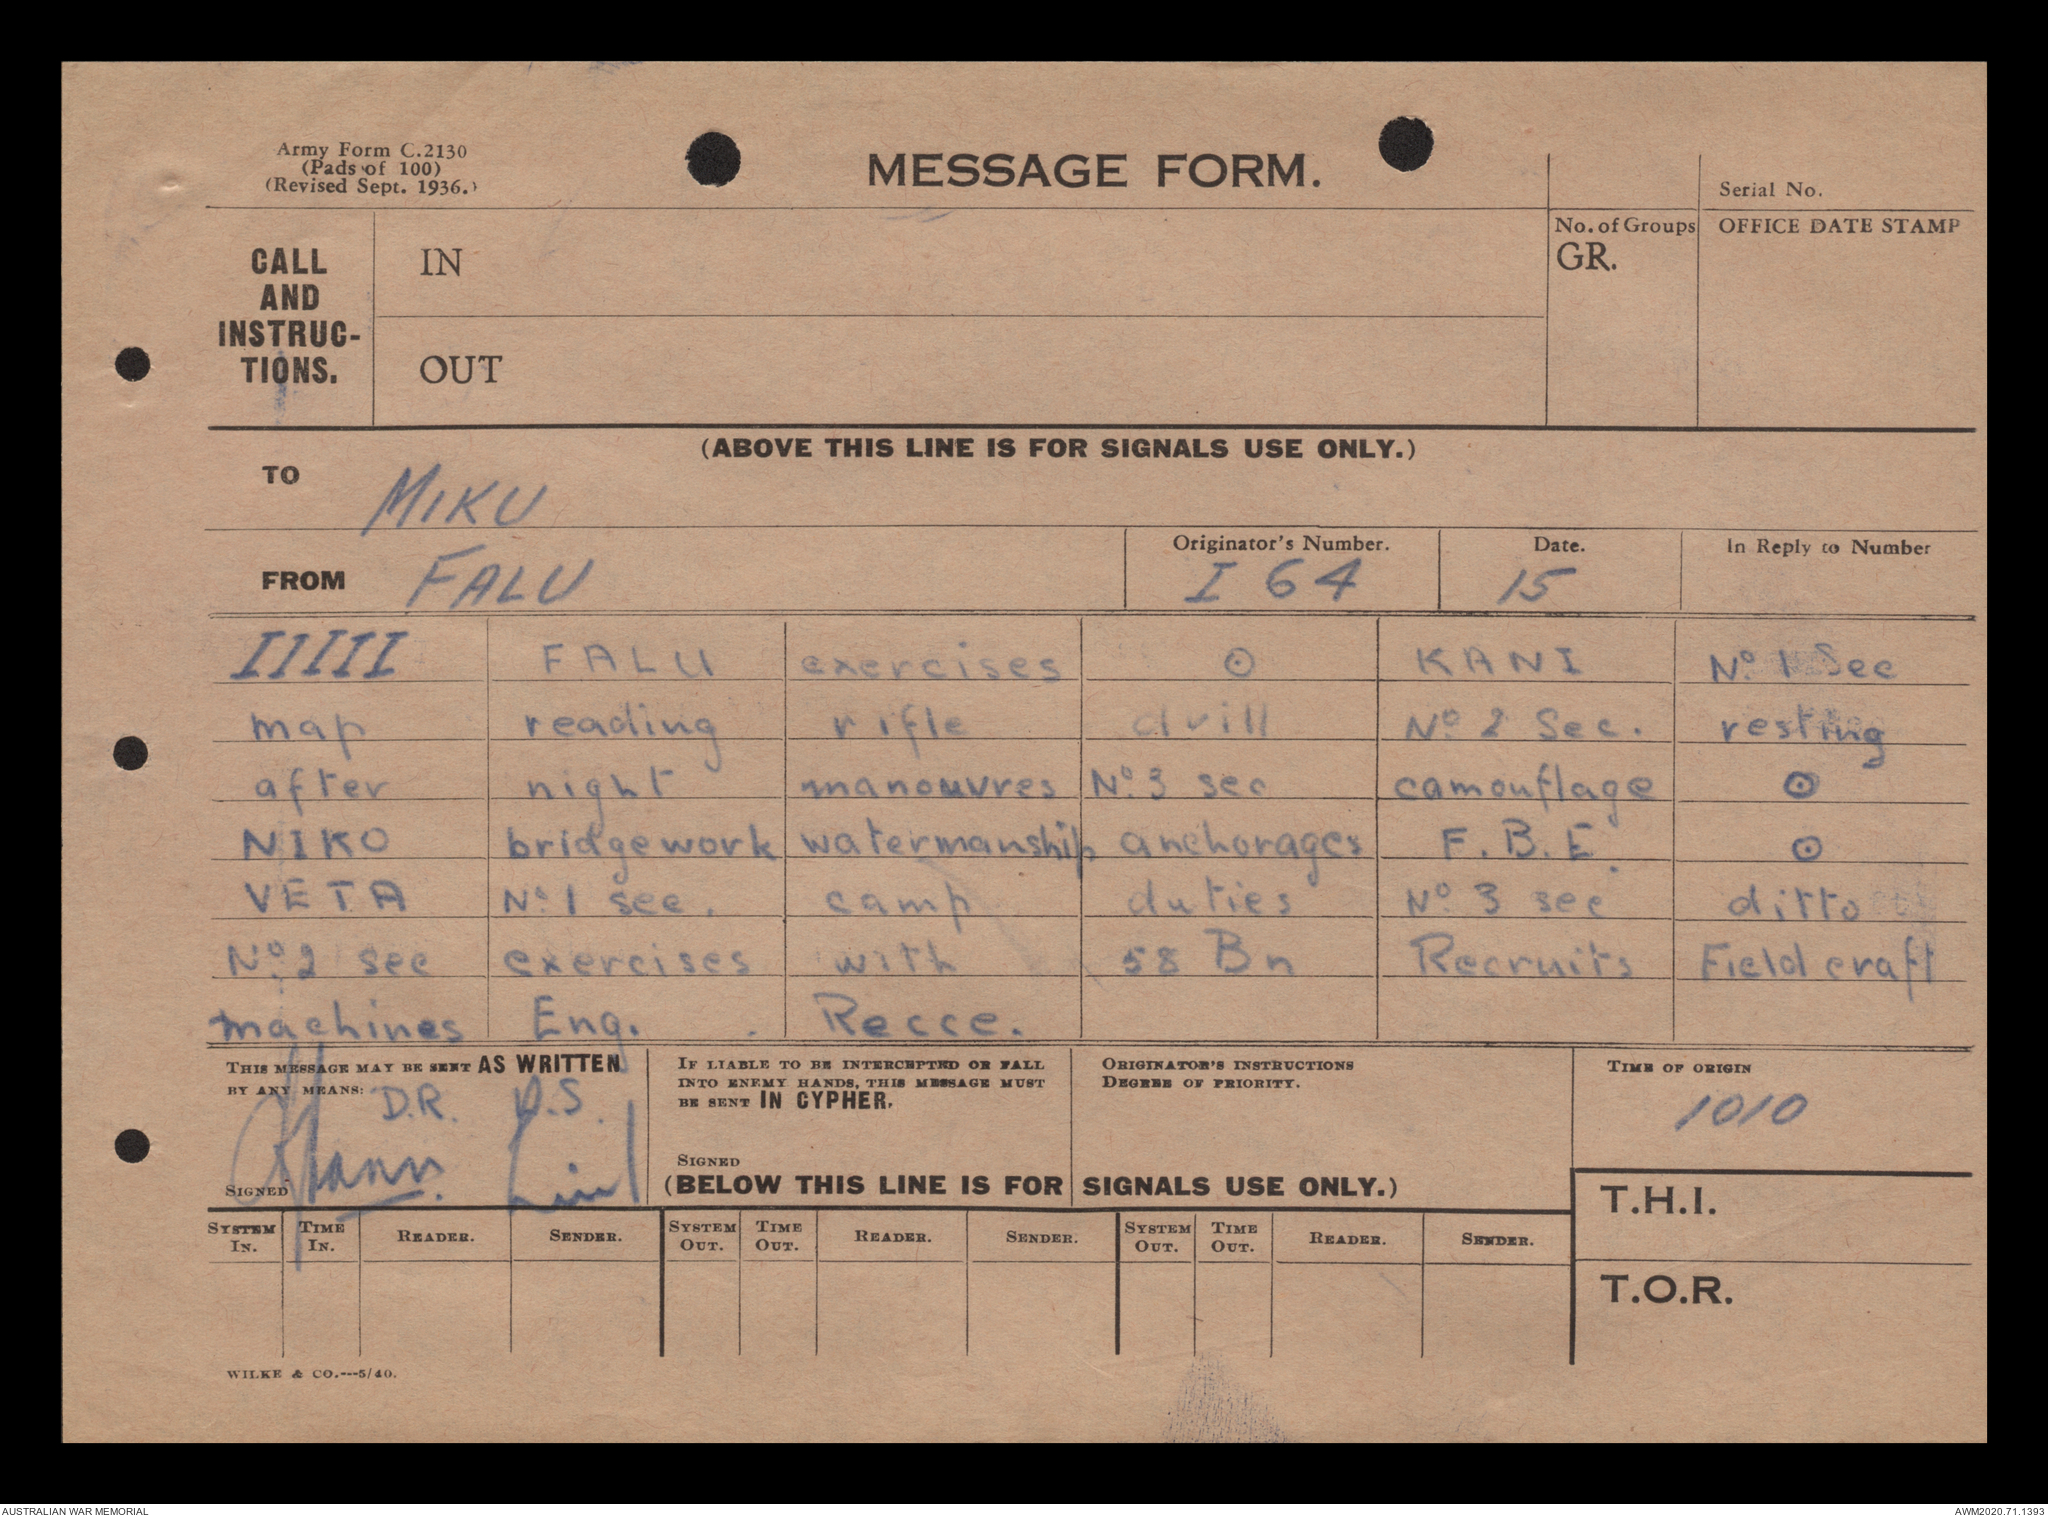 Army Form C.2130
(Pads of 100)
(Revised Sept. 1936.)
MESSAGE FORM.
Serial No.
CALL
AND
INSTRUC-
TIONS.
IN
OUT
No. of Groups
GR.
OFFICE DATE STAMP
(ABOVE THIS LINE IS FOR SIGNALS USE ONLY.)
TO MIKU
FROM FALU
Originator's Number.
I 64
Date.
15
In Reply to Number
IIIII FALU exercises ⊙ KANI No. 1 Sec
map reading rifle drill No. 2 Sec. resting
after night manouvres No. 3 sec camouflage ⊙
NIKO bridgework watermanship anchorages F.B.E. ⊙
VETA No. 1 sec. camp duties No. 3 sec ditto
No. 2 sec exercises with 58 Bn Recruits Fieldcraft
machines Eng. Recce.
THIS MESSAGE MAY BE SENT AS WRITTEN
BY ANY MEANS: D.R.
SIGNED
IF LIABLE TO BE INTERCEPTED OR FALL
INTO ENEMY HANDS, THIS MESSAGE MUST
BE SENT IN CYPHER.
SIGNED
ORIGINATOR'S INSTRUCTIONS
DEGREE OF PRIORITY.
TIME OF ORIGIN
1010
(BELOW THIS LINE IS FOR SIGNALS USE ONLY.)
T.H.I.
T.O.R.
SYSTEM IN. TIME IN. READER. SENDER. SYSTEM OUT. TIME OUT. READER. SENDER. SYSTEM OUT. TIME OUT. READER. SENDER.
WILKE & CO.---5/40.
AUSTRALIAN WAR MEMORIAL
AWM2020.71.1393